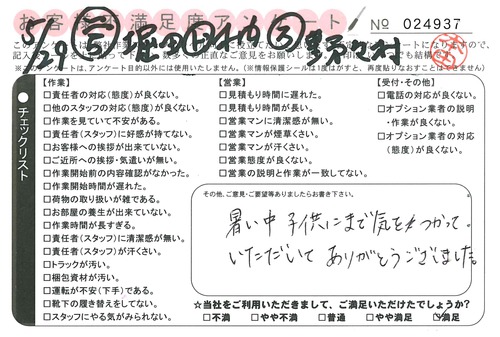 お客さま満足度アンケート
No 024937
5/29
チェックリスト
【作業】
□責任者の対応(態度)が良くない。
□他のスタッフの対応(態度)が良くない。
□作業を見ていて不安がある。
□責任者(スタッフ)に好感が持てない。
□お客様への挨拶が出来ていない。
□ご近所への挨拶・気遣いが無い。
□作業開始前の内容確認がなかった。
□作業開始時間が遅れた。
□荷物の取り扱いが雑である。
□お部屋の養生が出来ていない。
□作業時間が長すぎる。
□責任者(スタッフ)に清潔感が無い。
□責任者(スタッフ)が汗くさい。
□トラックが汚い。
□梱包資材が汚い。
□運転が不安(下手)である。
□靴下の履き替えをしてない。
□スタッフにやる気がみられない。
【営業】
□見積もり時間に遅れた。
□見積もり時間が長い。
□営業マンに清潔感が無い。
□営業マンが煙草くさい。
□営業マンが汗くさい。
□営業態度が良くない。
□営業の説明と作業が一致してない。
【受付・その他】
□電話の対応が良くない。
□オプション業者の説明
・作業が良くない。
□オプション業者の対応
(態度)が良くない。
その他、ご意見・ご要望等ありましたらお書き下さい。
暑い中 子供にまで気をつかって
いただいて ありがとうございました。
☆当社をご利用いただきまして、ご満足いただけたでしょうか?
□不満 □やや不満 □普通 □やや満足 ☑満足